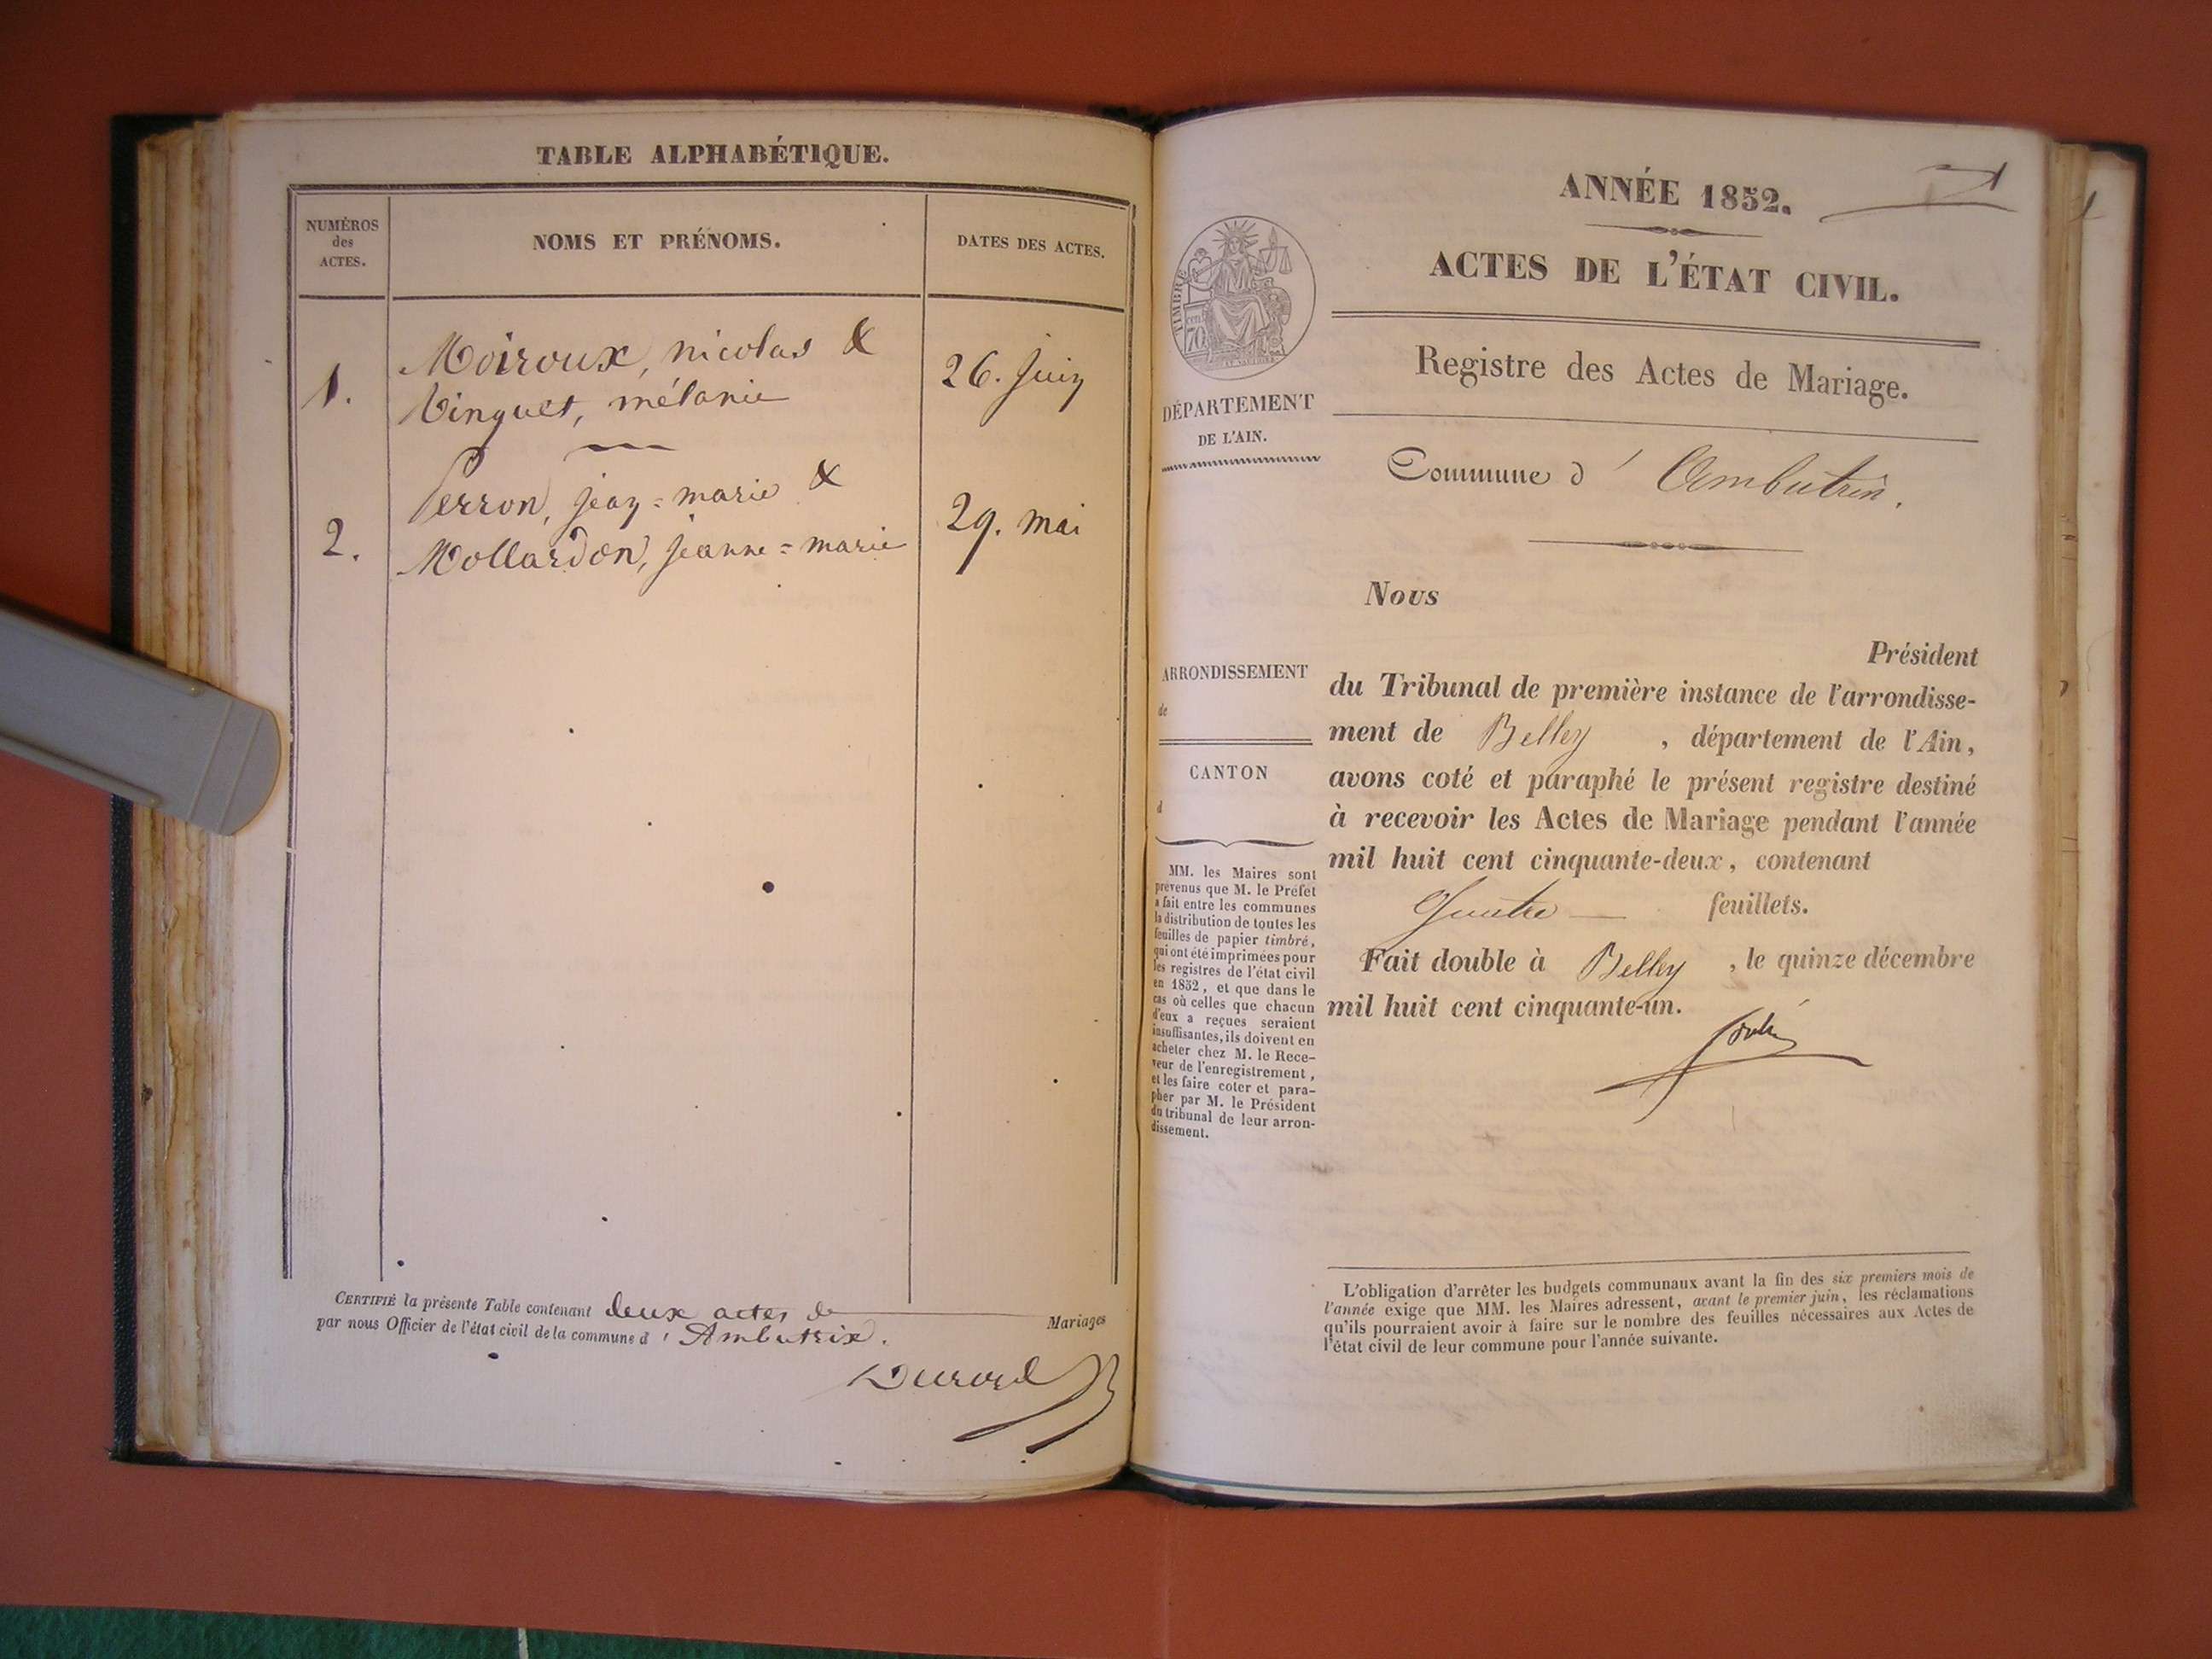 TABLE ALPHABÉTIQUE.
NUMÉROS
des
ACTES.
NOMS ET PRÉNOMS.
DATES DES ACTES.
1.
Moiroux, nicolas &
Vinguet, mélanie
26. juin
2.
Perron, jean=marie &
Mollardon, jeanne=marie
29. mai
CERTIFIÉ la présente Table contenant deux actes de Mariages
par nous Officier de l'état civil de la commune d'Ambutrix.
Durand
ANNÉE 1852.
1
ACTES DE L'ÉTAT CIVIL.
Registre des Actes de Mariage.
TIMBRE
70
DÉPARTEMENT
DE L'AIN.
Commune d'Ambutrix.
Nous
Président
du Tribunal de première instance de l'arrondisse-
ment de Belley, département de l'Ain,
avons coté et paraphé le présent registre destiné
à recevoir les Actes de Mariage pendant l'année
mil huit cent cinquante-deux, contenant
Quatre feuillets.
Fait double à Belley, le quinze décembre
mil huit cent cinquante-un.
ARRONDISSEMENT
de
CANTON
d
MM. les Maires sont
prévenus que M. le Préfet
a fait entre les communes
la distribution de toutes les
feuilles de papier timbré,
qui ont été imprimées pour
les registres de l'état civil
en 1852, et que dans le
cas où celles que chacun
d'eux a reçues seraient
insuffisantes, ils doivent en
acheter chez M. le Rece-
veur de l'enregistrement,
et les faire coter et para-
pher par M. le Président
du tribunal de leur arron-
dissement.
L'obligation d'arrêter les budgets communaux avant la fin des six premiers mois de
l'année exige que MM. les Maires adressent, avant le premier juin, les réclamations
qu'ils pourraient avoir à faire sur le nombre des feuilles nécessaires aux Actes de
l'état civil de leur commune pour l'année suivante.